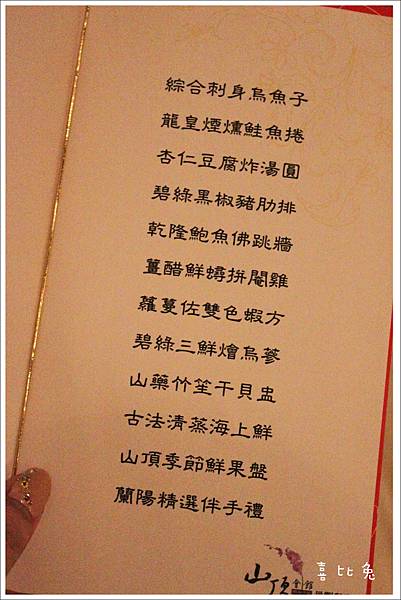 綜合刺身烏魚子
龍皇煙燻鮭魚捲
杏仁豆腐炸湯圓
碧綠黑椒豬肋排
乾隆鮑魚佛跳牆
薑醋鮮蟳拼閹雞
蘿蔓佐雙色蝦方
碧綠三鮮燴烏蔘
山藥竹笙干貝盅
古法清蒸海上鮮
山頂季節鮮果盤
蘭陽精選伴手禮
山頂會館
喜比兔